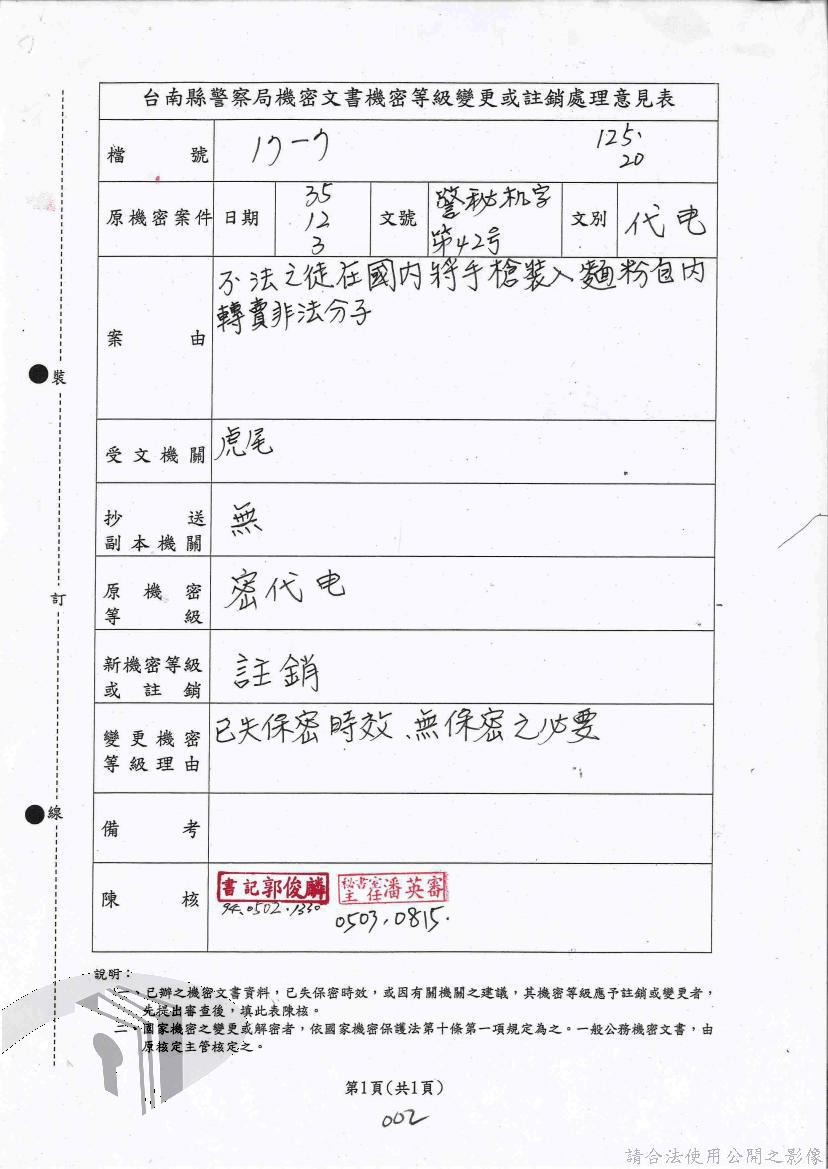 台南縣警察局機密文書機密等級變更或註銷處理意見表
檔號
125.
20
原機密案件 日期 35 12 3 文號 警秘机字第42号 文別 代电
案由
不法之徒在國內將手槍裝入麵粉包內
轉賣非法分子
受文機關 虎尾
抄送
副本機關
無
原機密
等級
密代电
新機密等級
或註銷
註銷
變更機密
等級理由
已失保密時效、無保密之必要
備考
陳核
書記郭俊麟
94.0502.1330
秘書室
主任潘英審
0503.0815.
裝
訂
線
說明:
一、已辦之機密文書資料,已失保密時效,或因有關機關之建議,其機密等級應予註銷或變更者,
先提出審查後,填此表陳核。
二、國家機密之變更或解密者,依國家機密保護法第十條第一項規定為之。一般公務機密文書,由
原核定主管核定之。
第1頁(共1頁)
002
請合法使用公開之影像